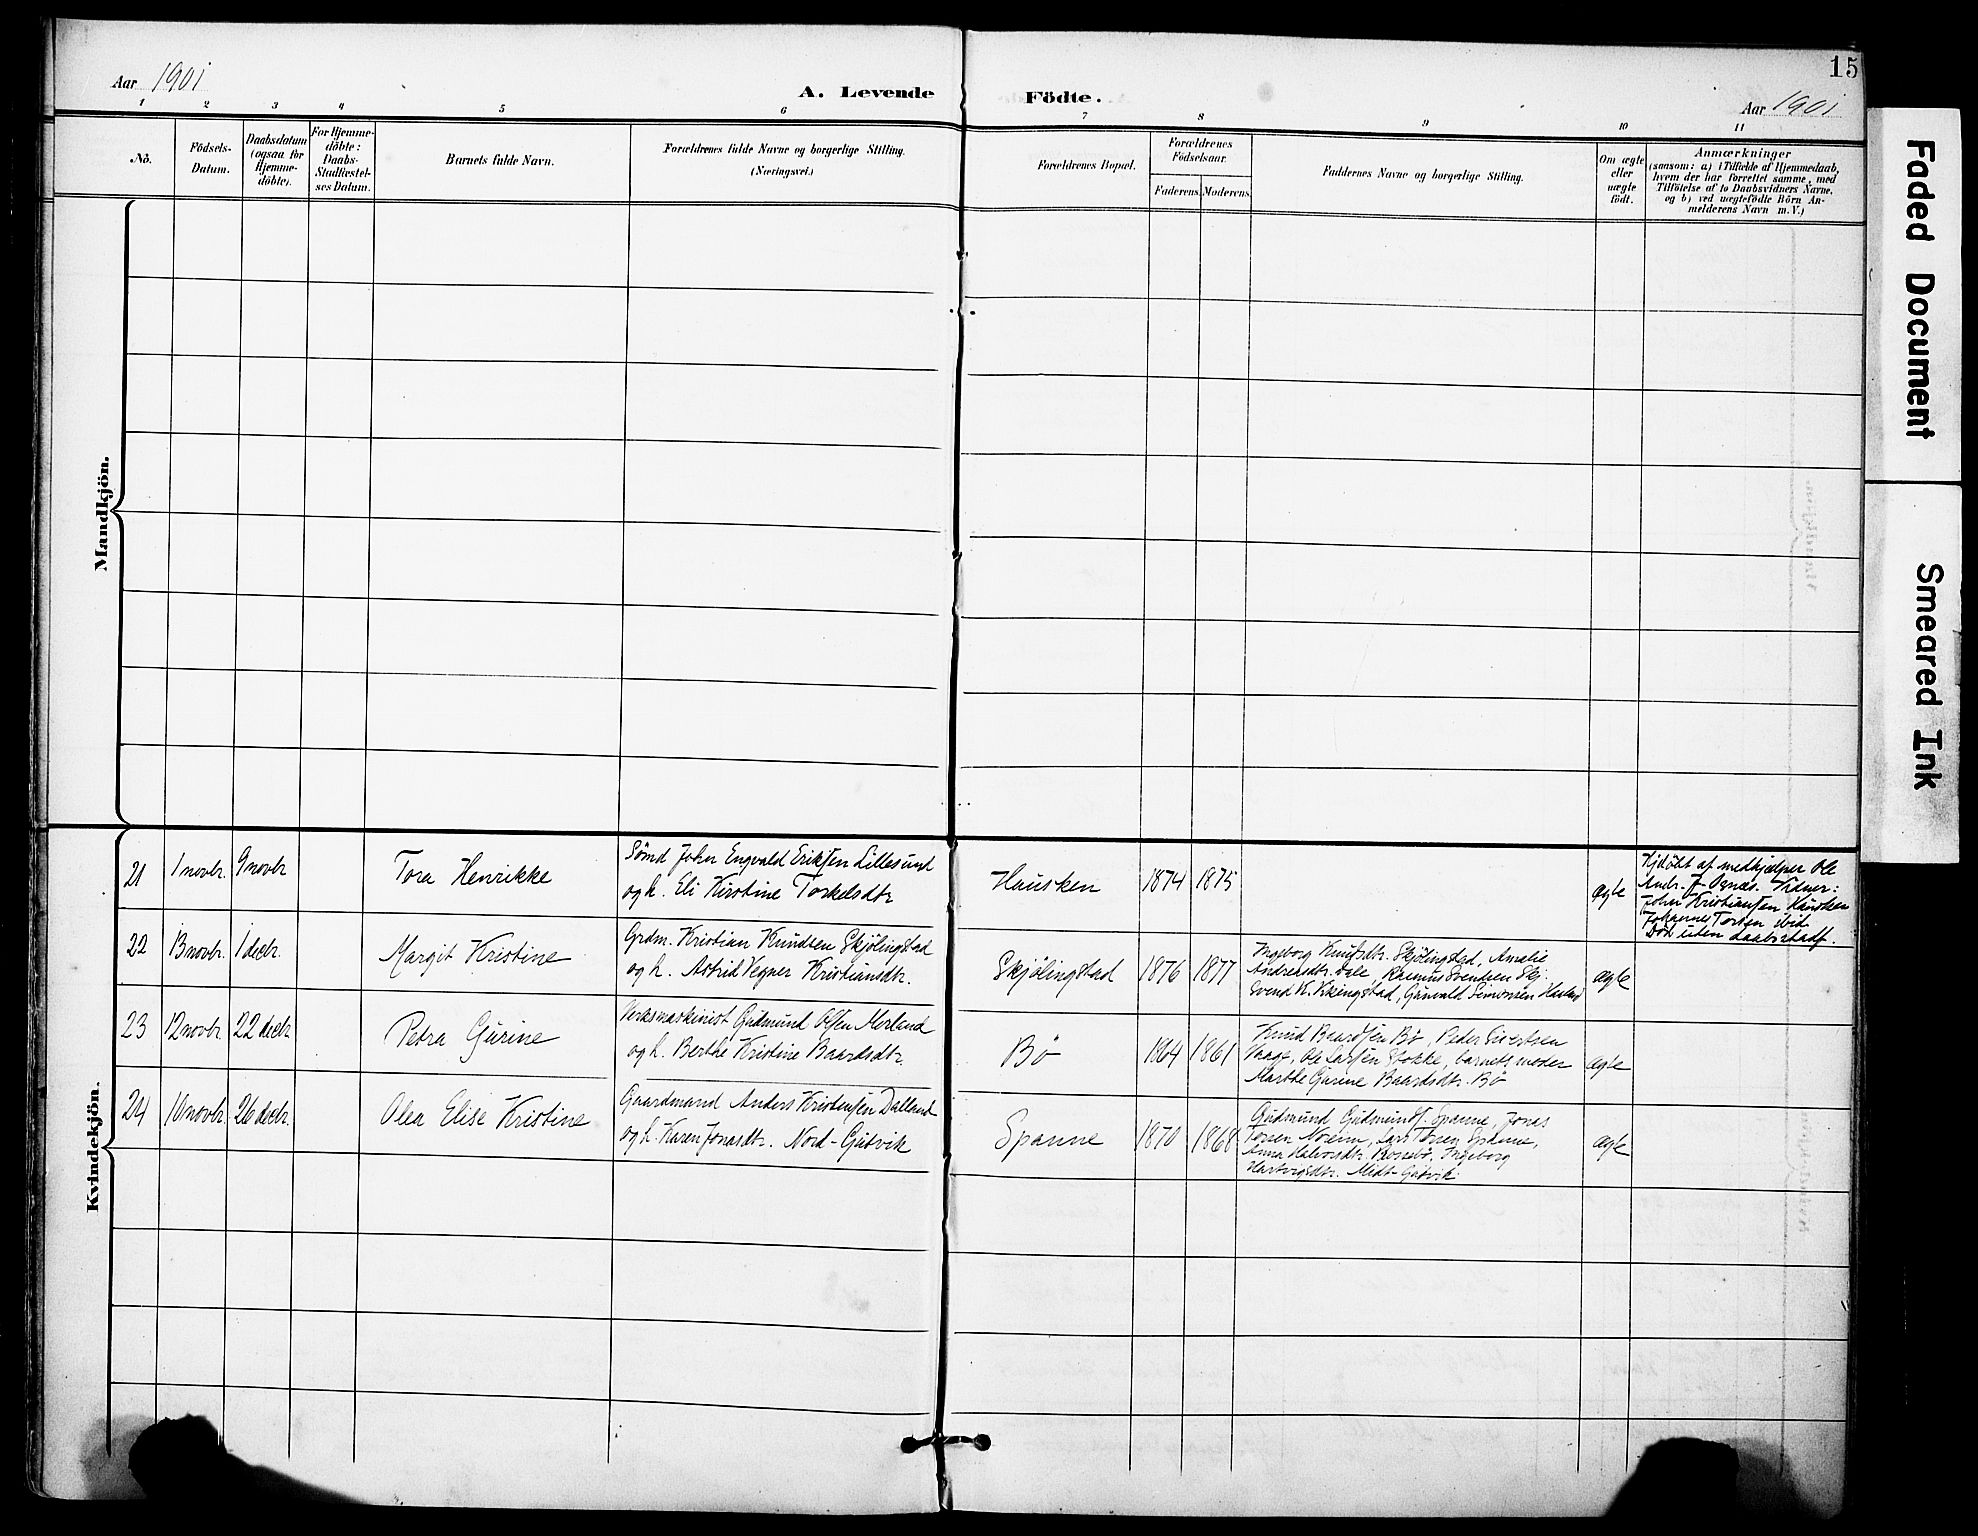 15
Aar 1901
A. Levende Födte.
Aar 1901
1 2 3 4 5 6 7 8 9 10 11
Nö.
Födsels-
Datum.
Daabsdatum
(ogsaa for
Hjemme-
döbte).
For Hjemme-
döbte:
Daabs-
Stadfæstel-
ses Datum.
Barnets fulde Navn.
Forældrenes fulde Navne og borgerlige Stilling.
(Næringsvei.)
Forældrenes Bopæl.
Forældrenes
Födselsaar.
Faderens. Moderens.
Faddernes Navne og borgerlige Stilling.
Om ægte
eller
uægte
födt.
Anmærkninger
(saasom: a) i Tilfælde af Hjemmedaab,
hvem der har forrettet samme, med
Tilföielse af to Daabsvidners Navne,
og b) ved uægtefödte Börn An-
melderens Navn m. V.)
Mandkjön.
Kvindekjön.
21 1 novbr. 9 novbr
Tora Henrikke
Sömd John Engvald Eriksen Lillesund
og h. Eli Kirstine Torkelsdtr
Hausken 1874 1875
ægte
Hjdöbt af medhjælper Ole
Andr. Vidner:
John Kristiansen Hausken
Johannes Torsen ibid
Död uden daabsstadf.
22 13 novbr. 1 decbr.
Margit Kristine
Grdm. Kristian Knudsen Skjölingstad
og h. Astrid Vegner Kristiansdtr.
Skjölingstad 1876 1877
Ingeborg Knudsdtr. Skjölingstad, Amalie
Andreasdtr. Dale, Rasmus Svendsen Skj.
Svend K. Vikingstad, Gunvald Simonsen
ægte
23 12 novbr. 22 decbr
Petra Gurine
Verksmaskinist Gudmund Olsen Merland
og h. Berthe Kristine Baardsdtr.
Bö 1864 1861
Knud Baardsen Bö, Peder Sivertsen
Vaage, Ole Larsen Stokke, barnets moder
Marthe Gurine Baardsdtr. Bö
ægte
24 10 novbr. 26 decbr.
Olea Elise Kristine
Gaardmand Anders Kristensen Dalland
og h. Karen Jonasdtr. Nord-Gudvik
Spanne 1870 1868
Gudmund Gudmunds. Spanne, Jonas
Torsen Noreim, Lars Torsen Spanne,
Anna Halvorsdtr. Rossebö, Ingeborg
Hartvigsdtr. Midt-Gudvik
ægte
Faded Document
Smeared Ink